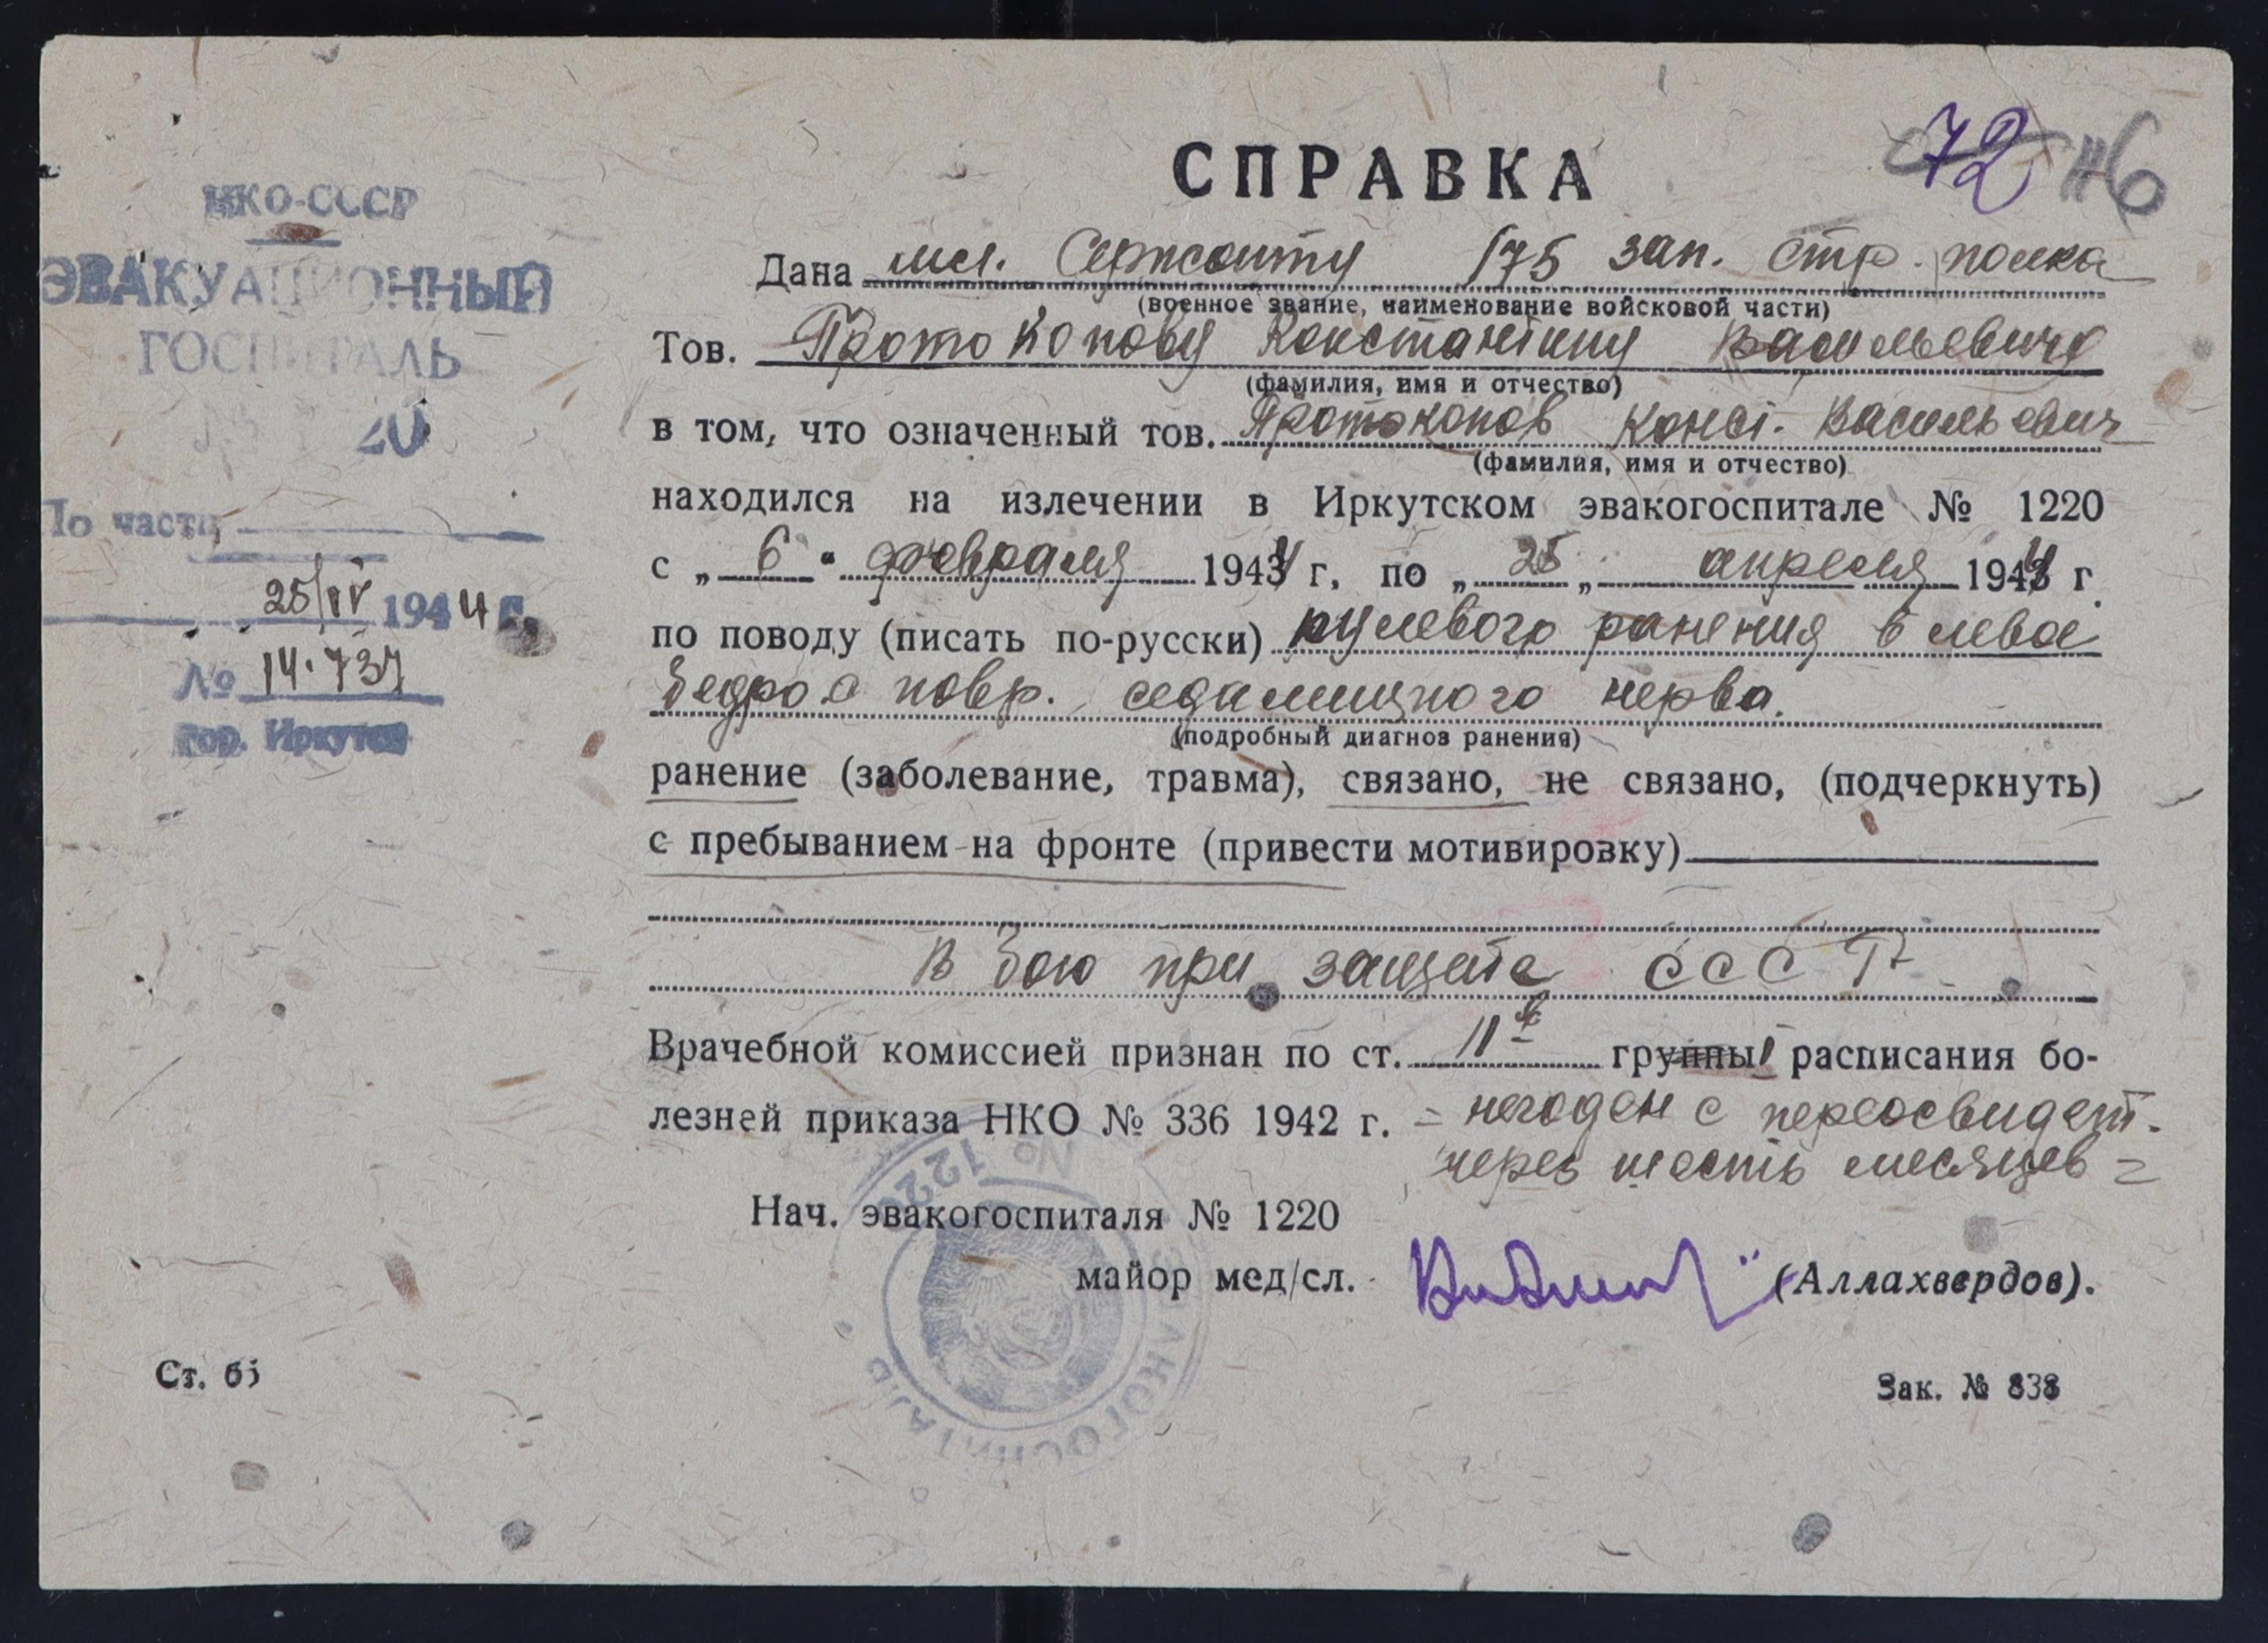 72 46
СПРАВКА
НКО-СССР
ЭВАКУАЦИОННЫЙ
ГОСПИТАЛЬ
20
По части
25/IV 1944 г.
№ 14.737
гор. Иркутск
Дана мл. Сержанту 175 зап. стр. полка
(военное звание, наименование войсковой части)
Тов. Протокопову Константину Васильевичу
(фамилия, имя и отчество)
в том, что означенный тов. Протокопов Конст. Васильевич
(фамилия, имя и отчество)
находился на излечении в Иркутском эвакогоспитале № 1220
с „ 6 " февраля 1944 г, по „ 25 „ апреля 1944 г.
по поводу (писать по-русски) пулевого ранения в левое
бедро с повр. седалищного нерва.
(подробный диагноз ранения)
ранение (заболевание, травма), связано, не связано, (подчеркнуть)
с пребыванием на фронте (привести мотивировку)
В бою при защите СССР
Врачебной комиссией признан по ст. 11 группы I расписания бо-
лезней приказа НКО № 336 1942 г. = негоден с переосвидет.
через шесть месяцев =
Нач. эвакогоспиталя № 1220
майор мед/сл. (Аллахвердов).
№ 1220
ЭВАКОГОСПИТАЛЬ
Ст. 65
Зак. № 838